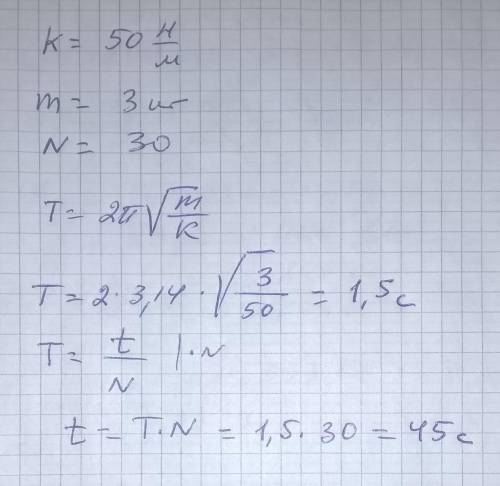 k = 50 н/м
m = 3 кг
N = 30
T = 2π√(m/k)
T = 2 · 3,14 · √(3/50) = 1,5 с
T = t/N | · N
t = T · N = 1,5 · 30 = 45 с